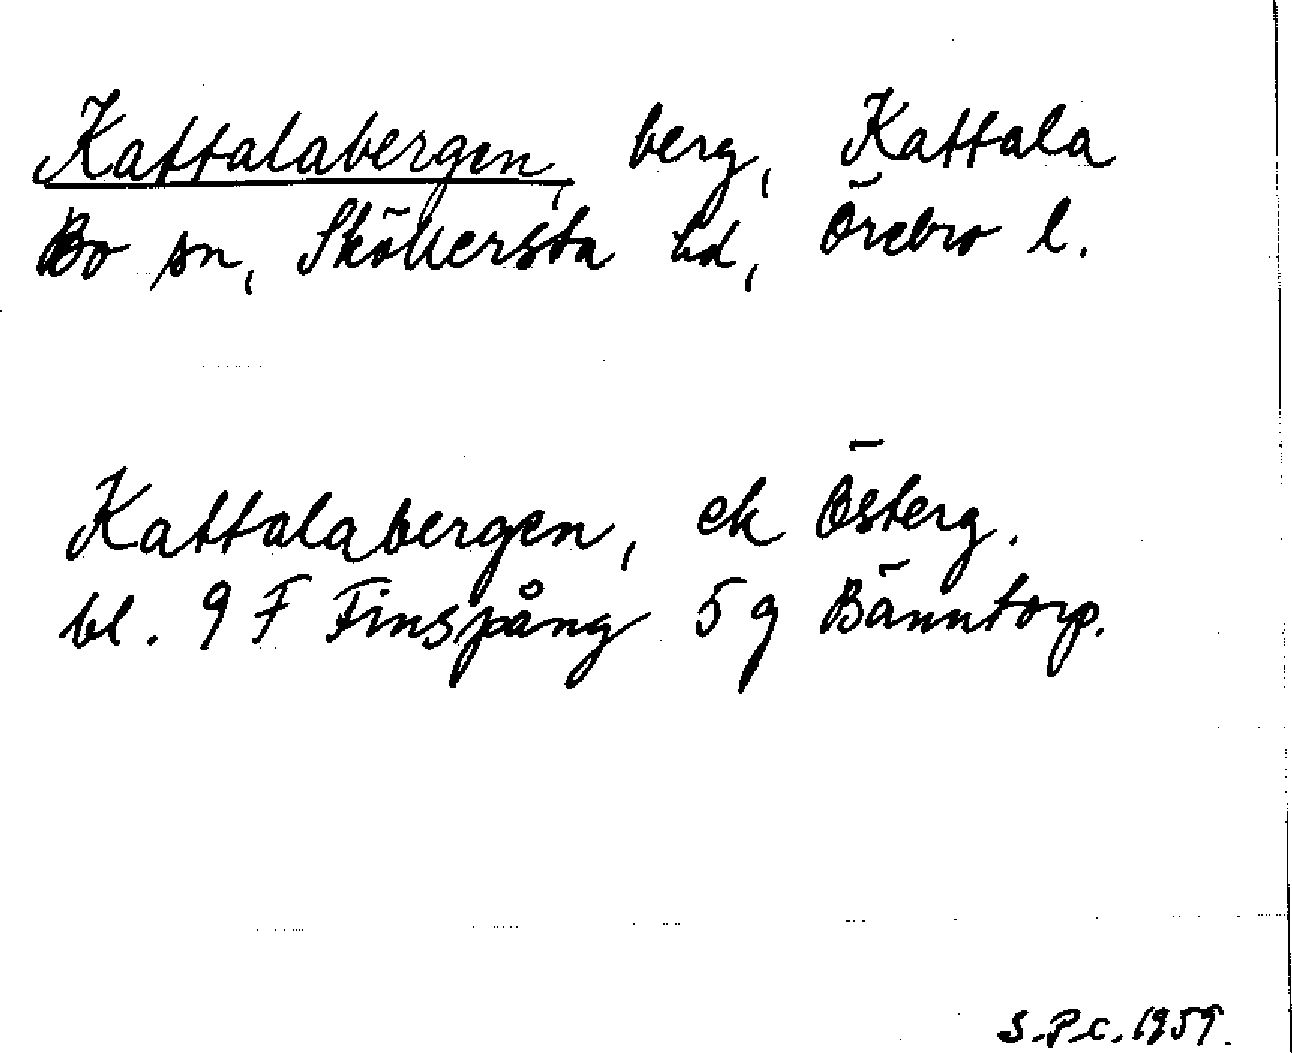 Kattalabergen, berg, Kattala
Bo sn, Sköllersta hd, Örebro l.
Kattalabergen, ek Österg.
bl. 9 F Finspång 5 g Bänntorp.
S.P.C. 1959.